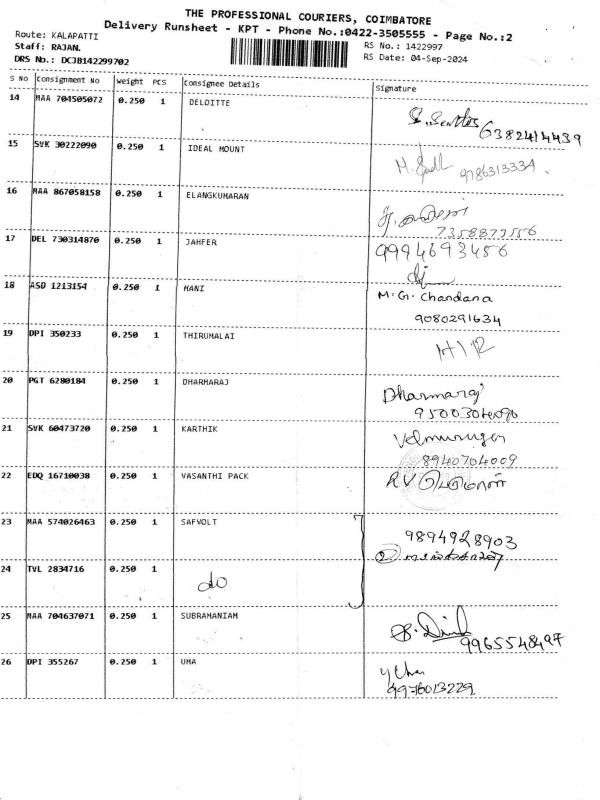 THE PROFESSIONAL COURIERS, COIMBATORE
Delivery Runsheet - KPT - Phone No.:0422-3505555 - Page No.:2
Route: KALAPATTI
Staff: RAJAN.
RS No.: 1422997
DRS No.: DCJB142299702
RS Date: 04-Sep-2024
S No Consignment No Weight PCS Consignee Details Signature
14 MAA 704505072 0.250 1 DELOITTE
6382414439
15 SVK 30222090 0.250 1 IDEAL MOUNT
9786313334
16 MAA 867058158 0.250 1 ELANGKUMARAN
7358877556
17 DEL 730314870 0.250 1 JAHFER 9994693456
18 ASD 1213154 0.250 1 MANI M.G. Chandana
9080291634
19 DPI 350233 0.250 1 THIRUMALAI
H/R
20 PGT 6280184 0.250 1 DHARMARAJ Dharmaraj
21 SVK 60473720 0.250 1 KARTHIK Velmurugan
8940704009
22 EDQ 16710038 0.250 1 VASANTHI PACK RV பெருமாள்
23 MAA 574026463 0.250 1 SAFVOLT
9894928903
24 TVL 2834716 0.250 1
do
25 MAA 704637071 0.250 1 SUBRAMANIAM
9965548497
26 DPI 355267 0.250 1 UMA
9976013229